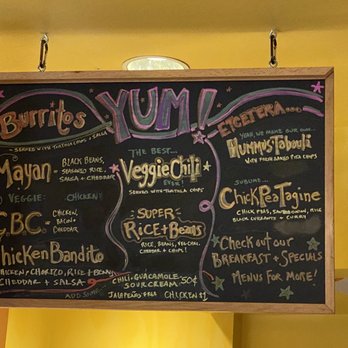 YUM!
Burritos
SERVED WITH TORTILLA CHIPS + SALSA
Mayan - BLACK BEANS,
SEASONED RICE,
SALSA + CHEDDAR
VEGGIE: CHICKEN:
C.B.C. CHICKEN,
BACON +
CHEDDAR
Chicken Bandito
CHICKEN + CHORIZO, RICE + BEANS
CHEDDAR + SALSA
THE BEST...
Veggie Chili
EVER!
SERVED WITH TORTILLA CHIPS
SUPER
RICE + BEANS
RICE, BEANS, VEG. CHILI,
CHEDDAR + CHIPS!
CHILI, GUACAMOLE 50¢
SOUR CREAM
JALAPEÑO FREE CHICKEN $1
ETCETERA...
YEAH, WE MAKE OUR OWN...
HUMMUS TABOULI
WITH PITA CHIPS
SUBLIME...
CHICK PEA TAGINE
CHICK PEAS, RICE
BLACK CURRANTS + CURRY
CHECK OUT OUR
BREAKFAST + SPECIALS
MENUS FOR MORE!